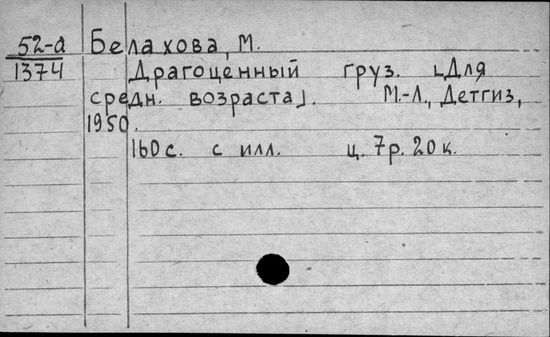 52-а Белахова, М.
1374 Драгоценный груз. [Для
средн. возраста]. М.-Л., Детгиз,
1950.
160 с. с илл. ц. 7р. 20к.